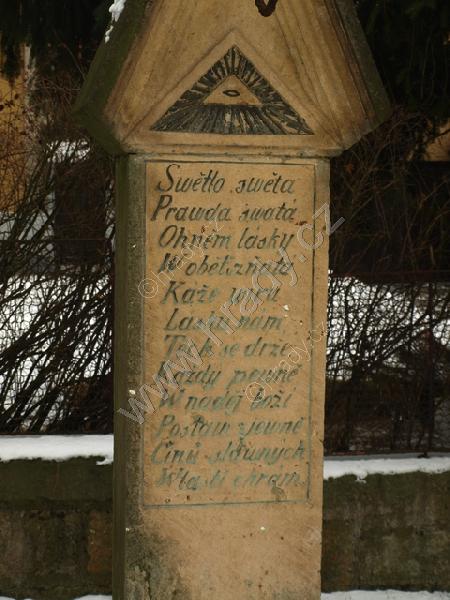 Swětlo swěta
Prawda swatá
Ohněm lásky
W obět
Kaže wíru
Lásku nám
Tak se drže
Každy pewně
W naděj boží
Postaw zjewně
Činů slawných
Wlasti chrám
www.hrady.cz